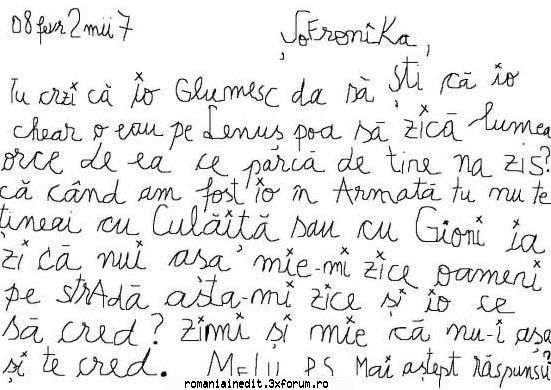 08 fevr 2 mii 7 Șofronika,
Tu crzi că io Glumesc da să ști că io
chear o eau pe Lenuș poa să zică lumea
orce de ea ce parcă de tine na zis?
că când am fost io în Armată tu nu te
țineai cu Culăiță sau cu Gioni ia
zi că nui asa mie-mi zice oameni
pe strAdă asta-mi zice și io ce
să cred? zimi și mie că nu-i asa
și te cred. P.S Mai astept răspunsu?
romaniainedit.3xforum.ro